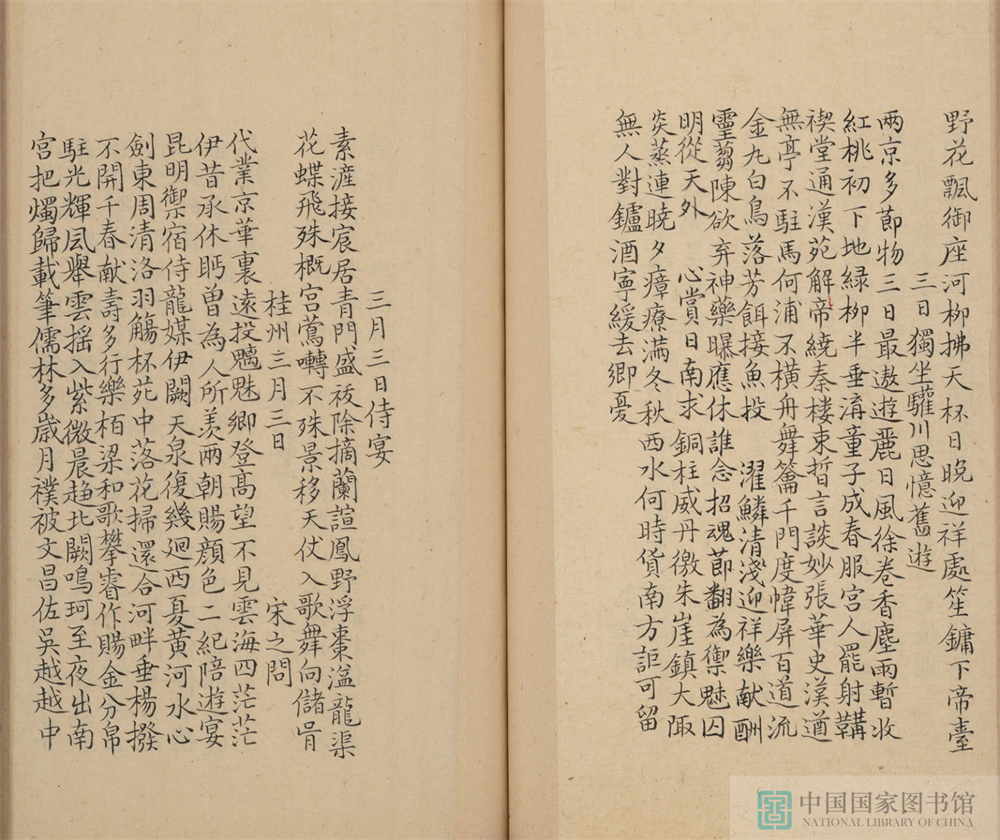 野花飄御座河柳拂天杯日晚迎祥處笙鏞下帝臺
三日獨坐驩川思憶舊遊
兩京多節物三日最遨遊麗日風徐卷香塵雨暫收
紅桃初下地緑柳半垂溝童子成春服宮人罷射韝
禊堂通漢苑解帝繞秦樓束晢言談妙張華史漢遒
無亭不駐馬何浦不橫舟舞籥千門度幃屏百道流
金九白鳥落芳餌接魚投 濯鱗清淺迎祥樂献酬
靈蒭陳欲弃神藥曝應休誰念招魂節翻為禦魅囚
明從天外 心賞日南求銅柱威丹徼朱崖鎮大陬
炎蒸連曉夕瘴癘满冬秋西水何時貨南方詎可留
無人對鑪酒寧緩去鄉憂
三月三日侍宴
素滻接宸居青門盛祓除摘蘭諠鳳野浮棗溢龍渠
花蝶飛殊槪宮鶯囀不殊景移天仗入歌舞向儲胥
桂州三月三日
宋之問
代業京華裏遠投魑魅鄉登髙望不見雲海四茫茫
伊昔承休眄曽為人所羨兩朝賜顔色二紀陪遊宴
昆明禦宿侍龍媒伊闕天泉復幾迴西夏黃河水心
劍東周清洛羽觴杯苑中落花掃還合河畔垂楊撥
不開千春献壽多行樂栢梁和歌攀睿作賜金分帛
駐光輝凨舉雲摇入紫微晨趋北闕鳴珂至夜出南
宮把燭歸載筆儒林多歲月襆被文昌佐吳越越中
中国国家图书馆
NATIONAL LIBRARY OF CHINA